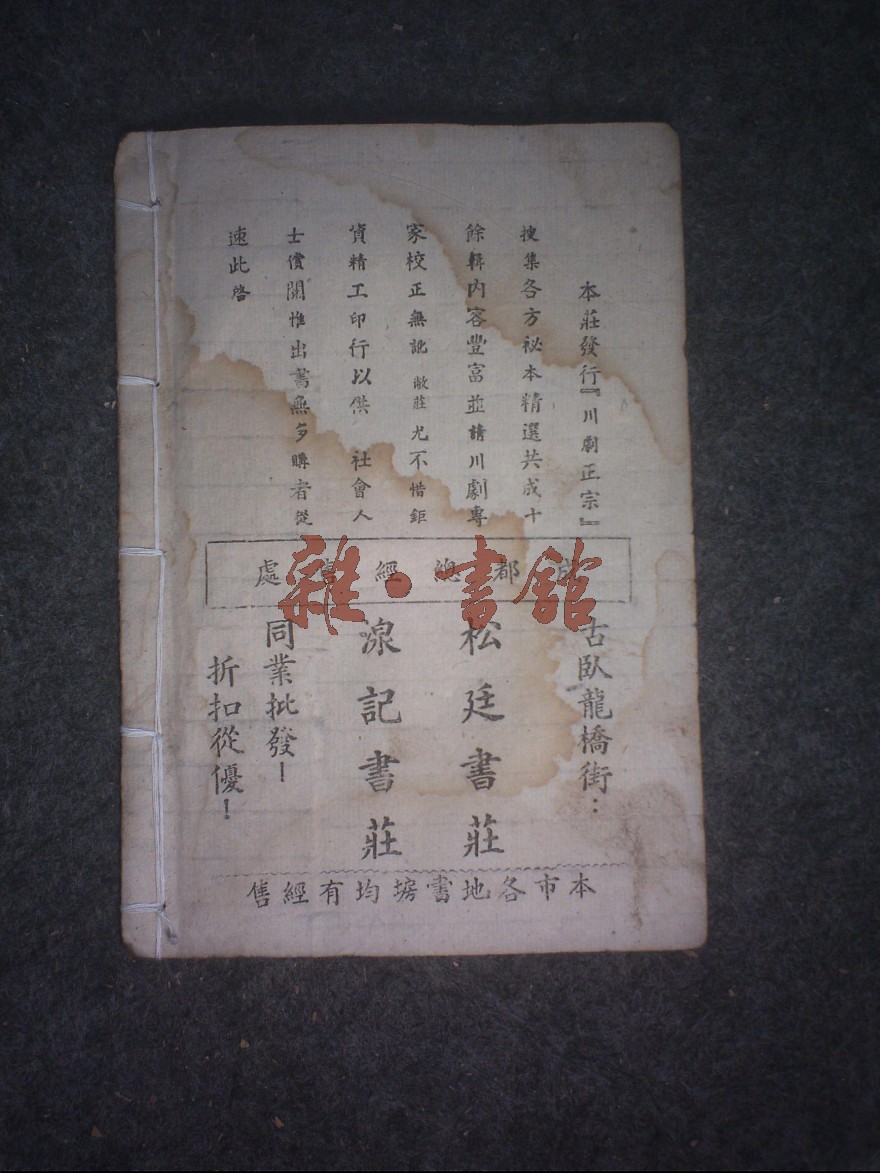 本莊發行『川劇正宗』
搜集各方祕本精選共成十
餘輯內容豐富並請川劇專
家校正無訛敝莊尤不惜鉅
資精工印行以供 社會人
士償閱惟出書無多購者從
速此啓
成都總經售處
古臥龍橋街：
松廷書莊
湶記書莊
同業批發！
折扣從優！
本市各地書塲均有經售
雜·書館